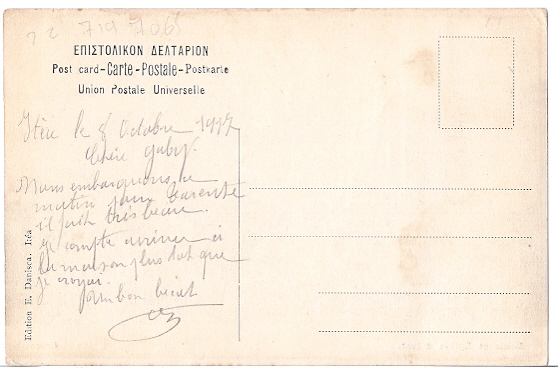 719 706
ΕΠΙΣΤΟΛΙΚΟΝ ΔΕΛΤΑΡΙΟΝ
Post card-Carte-Postale-Postkarte
Union Postale Universelle
Itéa le 8 Octobre 1917
Chère Gaby.
Nous embarquons ce
matin pour Tarente
il fait très beau.
je compte arriver à
la maison plus tôt que
je croyais.
un bon
Edition E. Danisca. Itéa